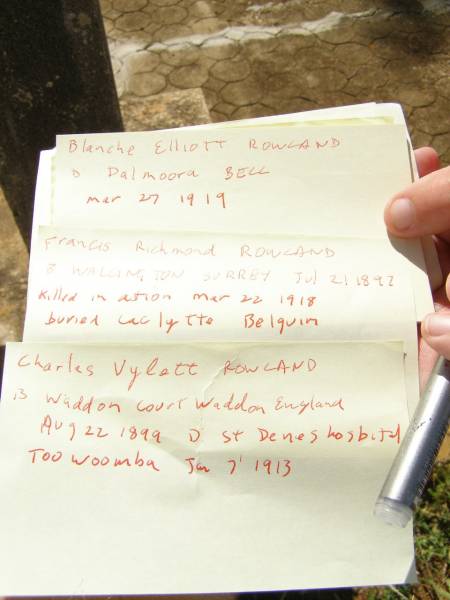 Blanche Elliott ROWLAND
D Dalmoora BELL
mar 27 1919
Francis Richmond ROWLAND
B WALLINGTON SURREY Jul 21 1892
Killed in ation mar 22 1918
buried Laclytte Belguin
Charles Vylett ROWLAND
B Waddon Court Waddon England
Aug 22 1899 D St Denes hosbital
TOOWOOMBA Jan 7 1913